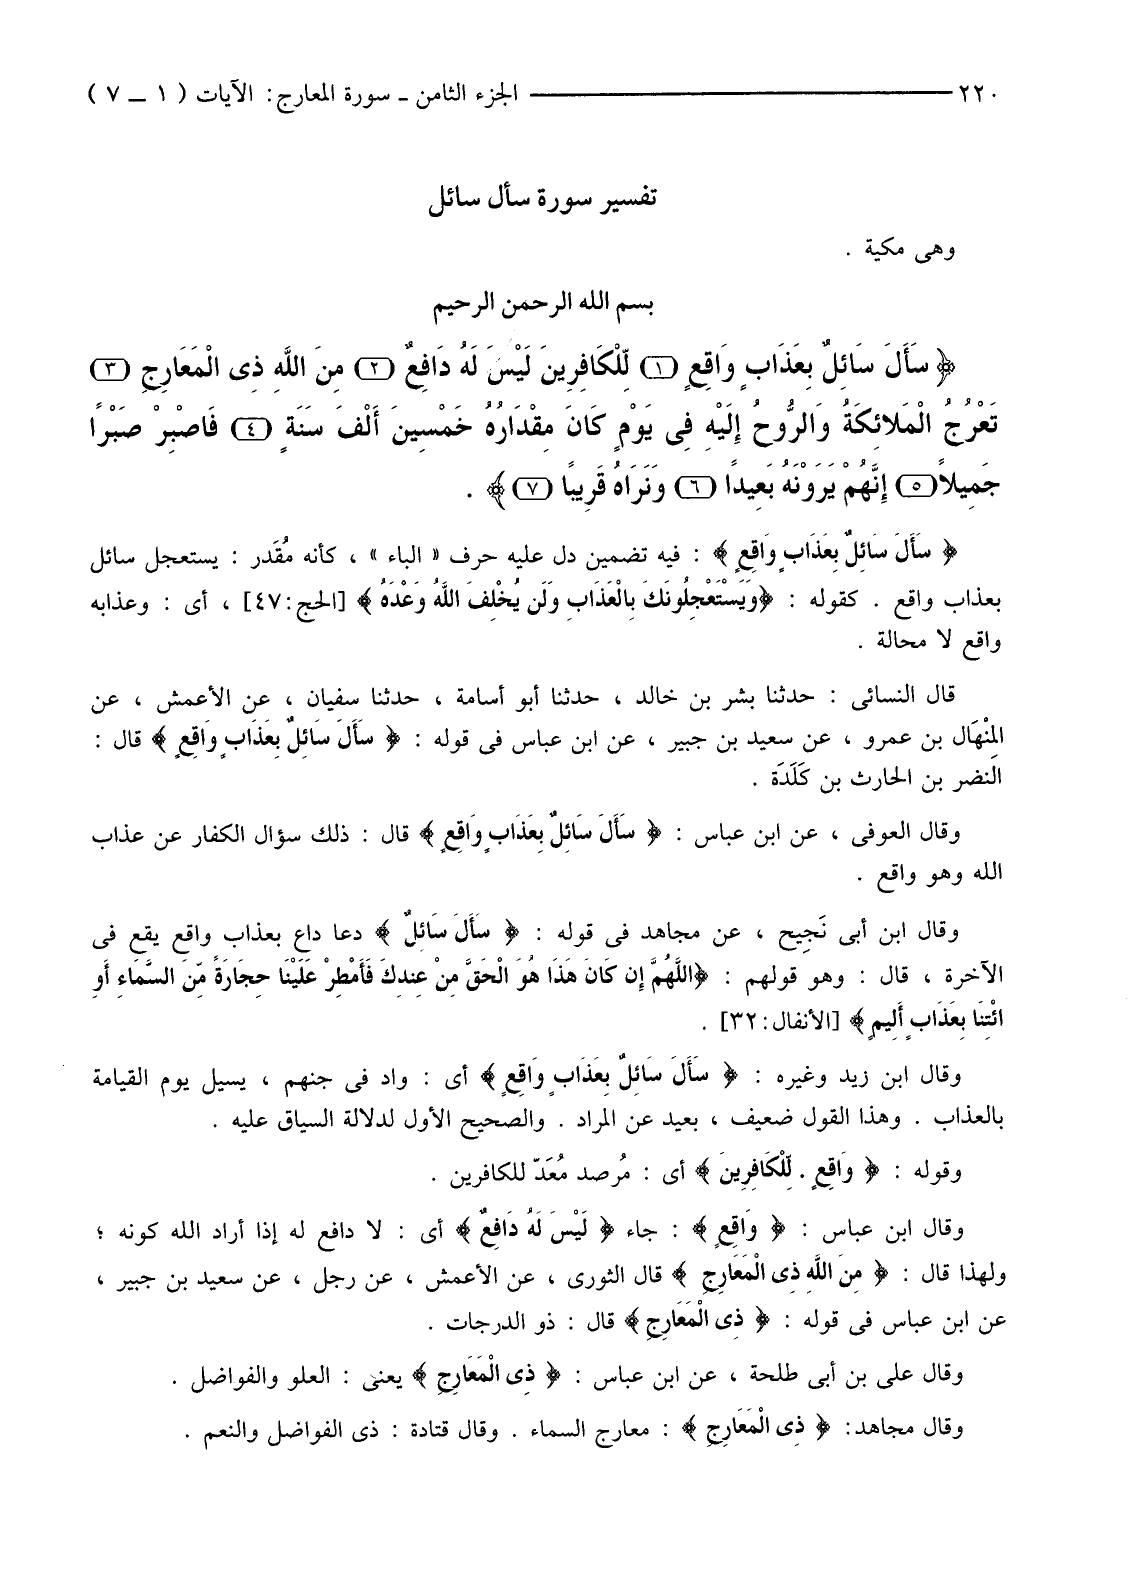 ٢٢٠ ــــــــ الجزء الثامن - سورة المعارج: الآيات ( ١ ــ ٧ )
تفسير سورة سأل سائل
وهى مكية .
بسم الله الرحمن الرحيم
﴿ سَأَلَ سَائِلٌ بِعَذَابٍ وَاقِعٍ (١) لِّلْكَافِرِينَ لَيْسَ لَهُ دَافِعٌ (٢) مِنَ اللَّهِ ذِى الْمَعَارِجِ (٣)
تَعْرُجُ الْمَلائِكَةُ وَالرُّوحُ إِلَيْهِ فِى يَوْمٍ كَانَ مِقْدَارُهُ خَمْسِينَ أَلْفَ سَنَةٍ (٤) فَاصْبِرْ صَبْرًا
جَمِيلاً (٥) إِنَّهُمْ يَرَوْنَهُ بَعِيدًا (٦) وَنَرَاهُ قَرِيبًا (٧) ﴾ .
﴿ سَأَلَ سَائِلٌ بِعَذَابٍ وَاقِعٍ ﴾ : فيه تضمين دل عليه حرف « الباء » ، كأنه مُقَدر : يستعجل سائل
بعذاب واقع . كقوله : ﴿وَيَسْتَعْجِلُونَكَ بِالْعَذَابِ وَلَن يُخْلِفَ اللَّهُ وَعْدَهُ ﴾ [الحج:٤٧] ، أى : وعذابه
واقع لا محالة .
قال النسائى : حدثنا بشر بن خالد ، حدثنا أبو أسامة ، حدثنا سفيان ، عن الأعمش ، عن
المِنْهَال بن عمرو ، عن سعيد بن جبير ، عن ابن عباس فى قوله : ﴿ سَأَلَ سَائِلٌ بِعَذَابٍ وَاقِعٍ ﴾ قال :
النضر بن الحارث بن كَلَدَة .
وقال العوفى ، عن ابن عباس : ﴿ سَأَلَ سَائِلٌ بِعَذَابٍ وَاقِعٍ ﴾ قال : ذلك سؤال الكفار عن عذاب
الله وهو واقع .
وقال ابن أبى نَجِيح ، عن مجاهد فى قوله : ﴿ سَأَلَ سَائِلٌ ﴾ دعا داع بعذاب واقع يقع فى
الآخرة ، قال : وهو قولهم : ﴿اللَّهُمَّ إِن كَانَ هَذَا هُوَ الْحَقَّ مِنْ عِندِكَ فَأَمْطِرْ عَلَيْنَا حِجَارَةً مِّنَ السَّمَاءِ أَوِ
ائْتِنَا بِعَذَابٍ أَلِيمٍ ﴾ [الأنفال:٣٢] .
وقال ابن زيد وغيره : ﴿ سَأَلَ سَائِلٌ بِعَذَابٍ وَاقِعٍ ﴾ أى : واد فى جنهم ، يسيل يوم القيامة
بالعذاب . وهذا القول ضعيف ، بعيد عن المراد . والصحيح الأول لدلالة السياق عليه .
وقوله : ﴿ وَاقِعٍ . لِّلْكَافِرِينَ ﴾ أى : مُرصد مُعَدّ للكافرين .
وقال ابن عباس : ﴿ وَاقِعٍ ﴾ : جاء ﴿ لَيْسَ لَهُ دَافِعٌ ﴾ أى : لا دافع له إذا أراد الله كونه ؛
ولهذا قال : ﴿ مِنَ اللَّهِ ذِى الْمَعَارِجِ ﴾ قال الثورى ، عن الأعمش ، عن رجل ، عن سعيد بن جبير ،
عن ابن عباس فى قوله : ﴿ ذِى الْمَعَارِجِ ﴾ قال : ذو الدرجات .
وقال على بن أبى طلحة ، عن ابن عباس : ﴿ ذِى الْمَعَارِجِ ﴾ يعنى : العلو والفواضل .
وقال مجاهد: ﴿ ذِى الْمَعَارِجِ ﴾ : معارج السماء . وقال قتادة : ذى الفواضل والنعم .